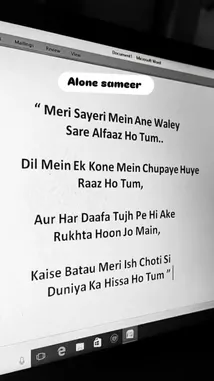 Document1 - Microsoft Word
Mailings
Review
View
Alone sameer
“ Meri Sayeri Mein Ane Waley
Sare Alfaaz Ho Tum..
Dil Mein Ek Kone Mein Chupaye Huye
Raaz Ho Tum,
Aur Har Daafa Tujh Pe Hi Ake
Rukhta Hoon Jo Main,
Kaise Batau Meri Ish Choti Si
Duniya Ka Hissa Ho Tum ”